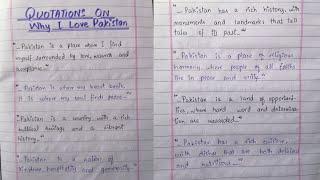 QUOTATIONS ON
Why I Love Pakistan
"...Pakistan is a place where I find
myself surrounded by love, warmth and
acceptance..."
"...Pakistan is where my heart beats.
It is where my soul finds peace..."
"...Pakistan is a country with a rich
cultural heritage and a vibrant
history..."
"...Pakistan is a nation of
kindness, hospitality and generosity
"...Pakistan has a rich history, with
monuments and landmarks that tell
tales of its past..."
"...Pakistan is a place of religious
harmony where people of all faiths
live in peace and unity..."
"...Pakistan is a land of opportuni-
ties, where hard work and determina-
tion are rewarded..."
"...Pakistan has a rich cuisine,
with dishes that are both delicious
and nutritious..."